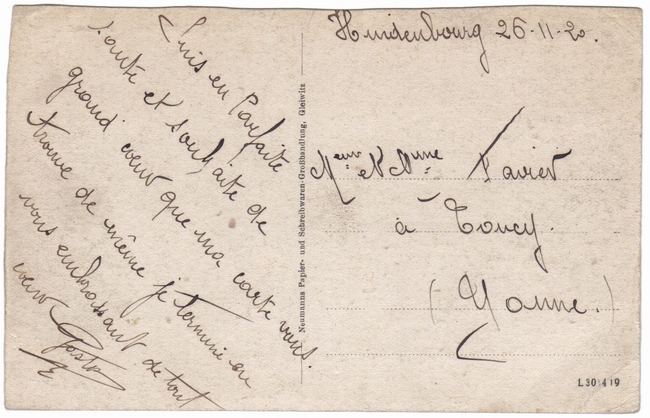 Hindenbourg 26-11-20.
Suis en Parfaite
sante et souhaite de
grand cœur que ma carte vous
trouve de même je termine en
vous embrassant de tout
cœur Gaston
Neumanns Papier- und Schreibwaren-Großhandlung, Gleiwitz
Meur et Mme Favier
à Toucy.
(Yonne.)
L 30 419